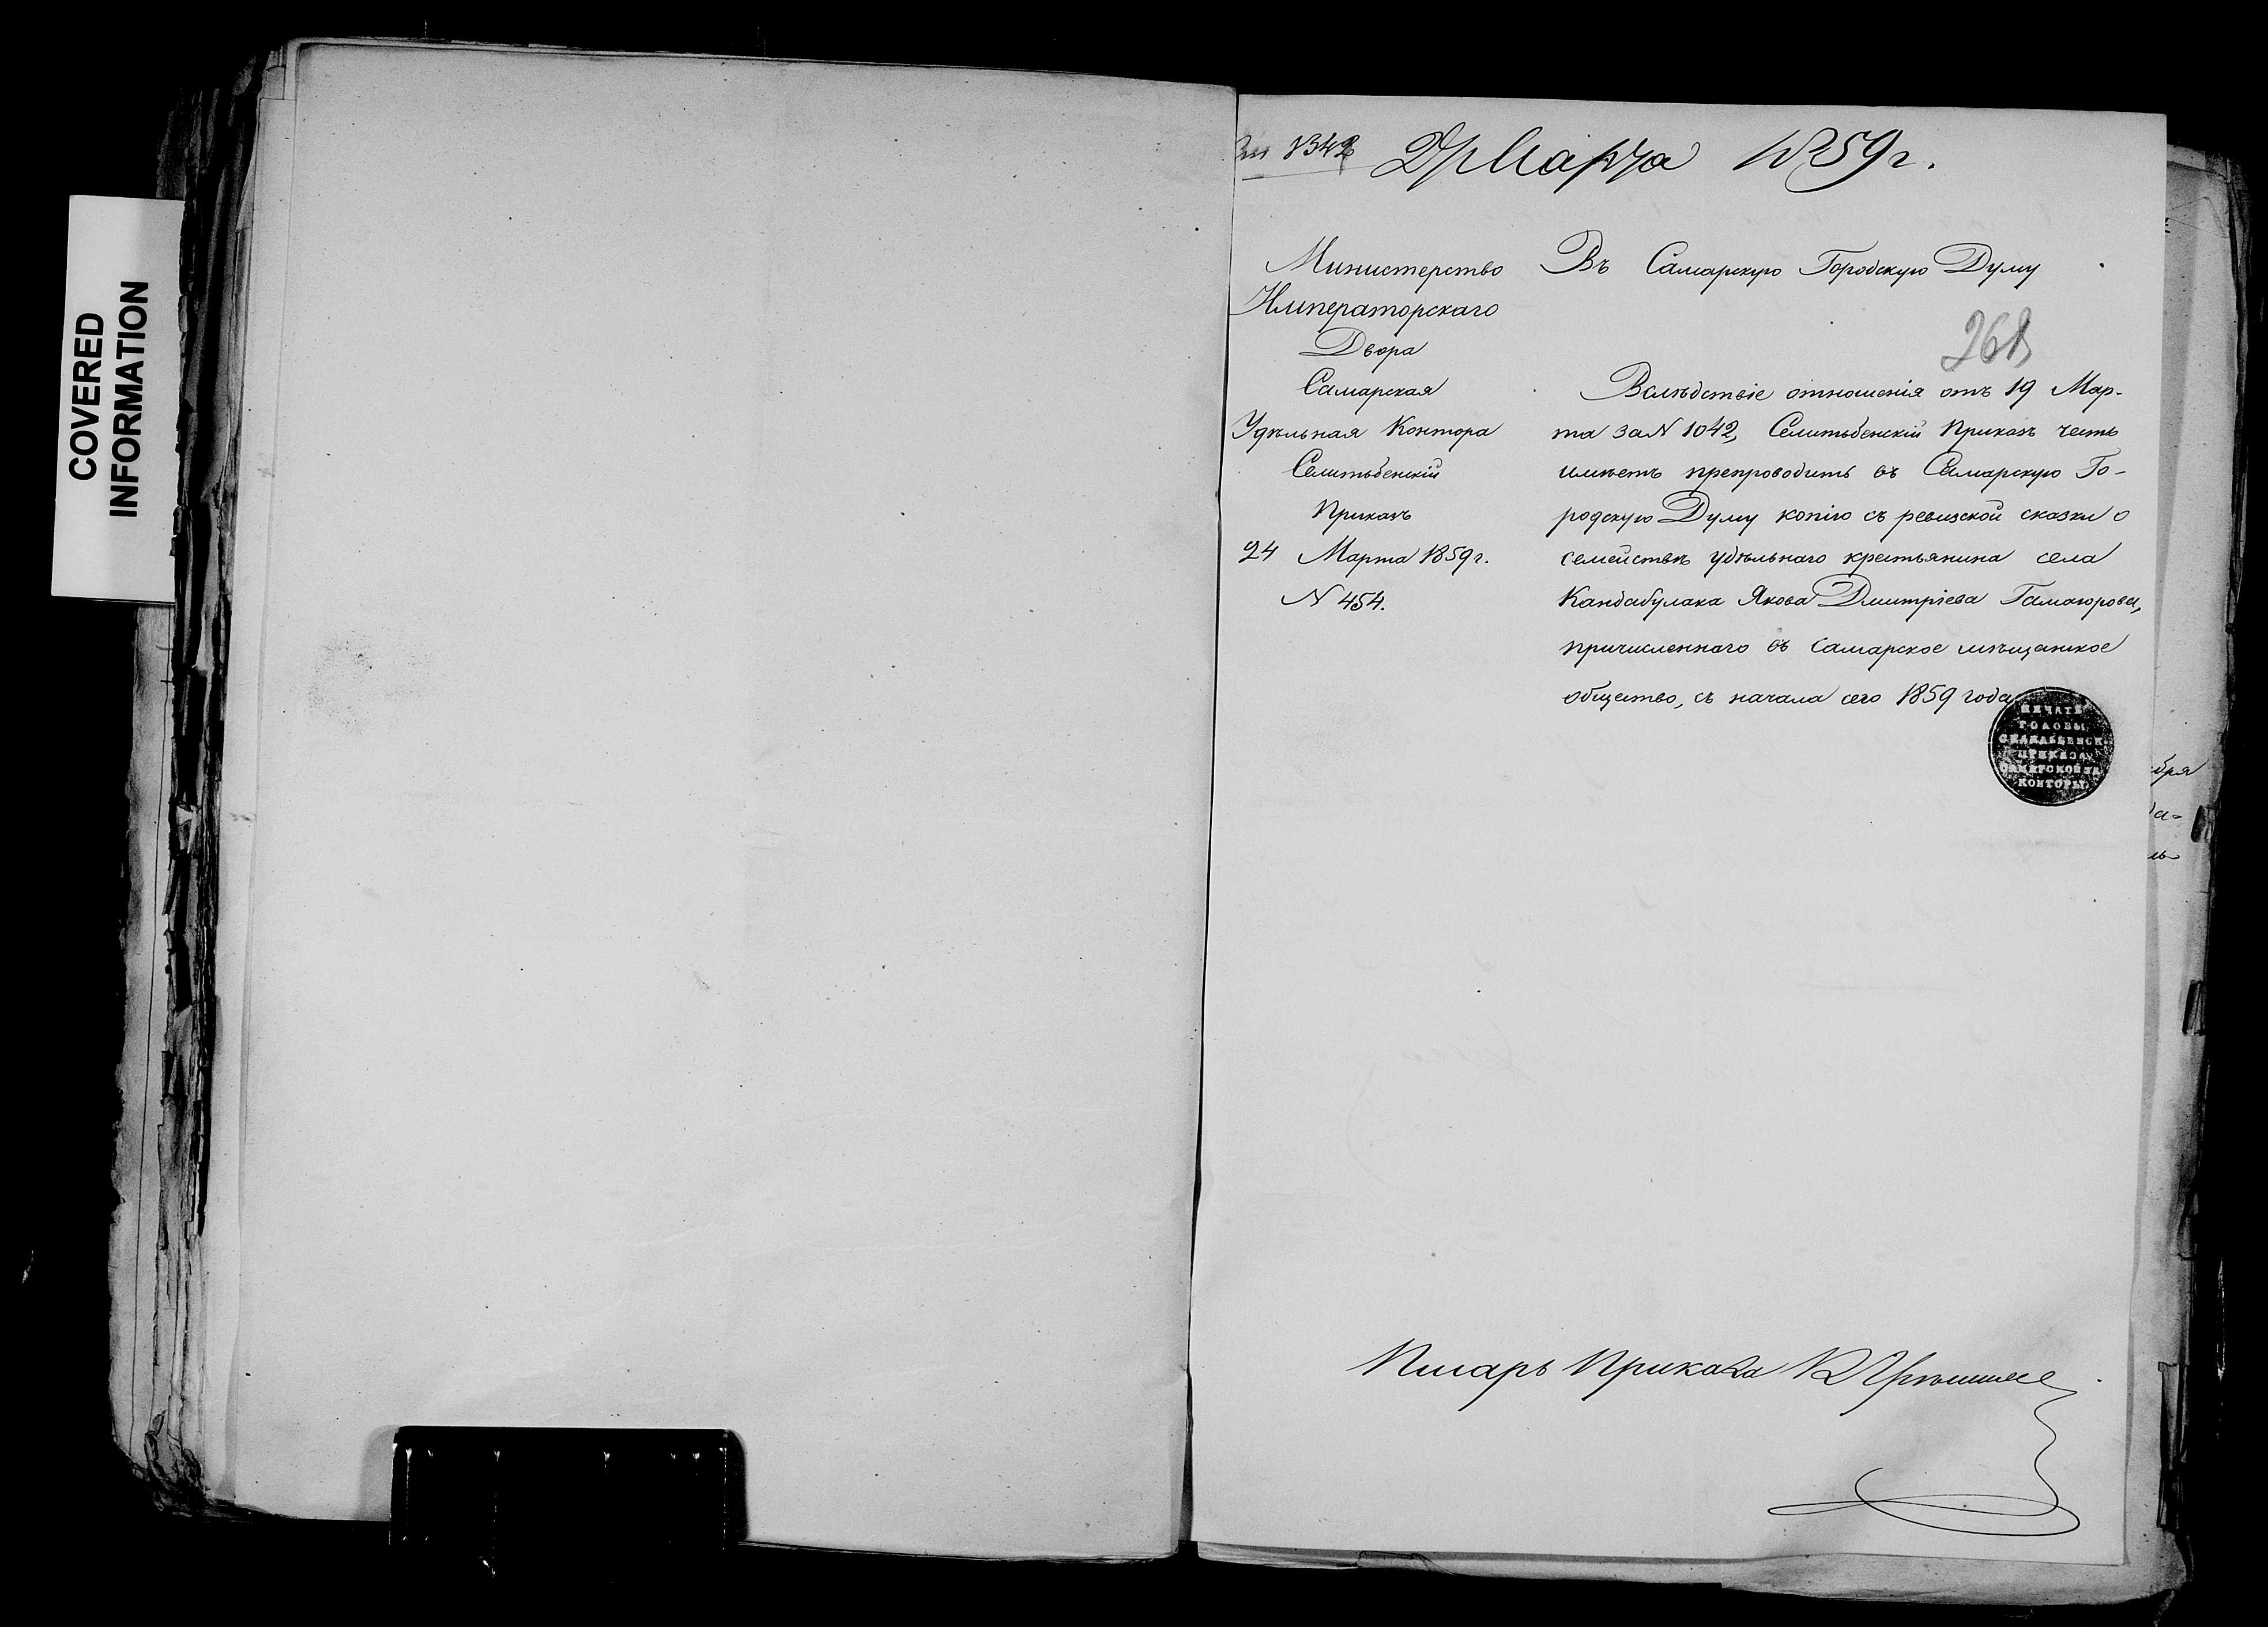 COVERED
INFORMATION
1342 Марта 1859 г.
Министерство
Императорскаго
Двора
Самарская
Удѣльная Контора
Селитьбенскій
Приказъ
24 Марта 1859 г.
N 454.
Въ Самарскую Городскую Думу
268
Вслѣдствіе отношенія отъ 19 Мар-
та за N 1042, Селитьбенскій Приказъ честь
имѣетъ препроводить въ Самарскую Го-
родскую Думу копію съ ревизской сказки о
семействѣ удѣльнаго крестьянина села
Кандабулака Якова Дмитріева
причисленнаго въ Самарское мѣщанское
общество, съ начала сего 1859 года
ПЕЧАТЬ
ГОЛОВЫ
ПРИКАЗА
КОНТОРЫ
бря
Писарь Приказа